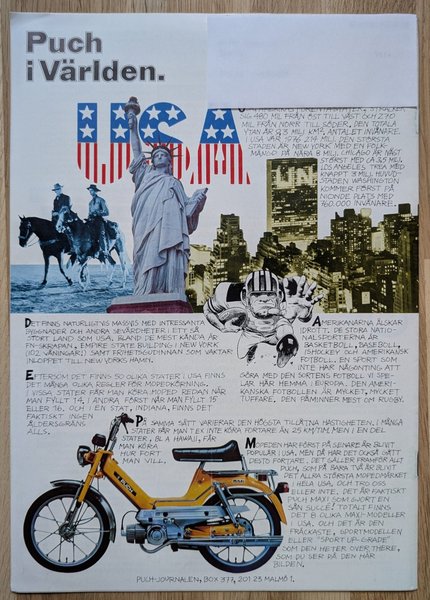 Puch
i Världen.
USA
SIG 480 MIL FRÅN ÖST TILL VÄST OCH 270
MIL FRÅN NORR TILL SÖDER, DEN TOTALA
YTAN ÄR 9,3 MILJ KM², ANTALET INVÅNARE
I USA VAR 1976 214 MILJ. DEN STÖRSTA
STADEN ÄR NEW YORK MED EN FOLK-
MÄNGD PÅ NÄRA 8 MILJ. CHICAGO ÄR NÄST
STÖRST MED CA 3,5 MILJ.
LOS ANGELES TREA MED
KNAPPT 3 MILJ. HUVUD-
STADEN WASHINGTON
KOMMER FÖRST PÅ
NIONDE PLATS MED
760.000 INVÅNARE.
DET FINNS NATURLIGTVIS MASSVIS MED INTRESSANTA
BYGGNADER OCH ANDRA SEVÄRDHETER I ETT SÅ
STORT LAND SOM USA. BLAND DE MEST KÄNDA ÄR
EN SKRAPAN, EMPIRE STATE BUILDING I NEW YORK
(102 VÅNINGAR!) SAMT FRIHETSGUDINNAN SOM VAKTAR
INLOPPET TILL NEW YORKS HAMN.
EFTERSOM DET FINNS 50 OLIKA STATER I USA FINNS
DET MÅNGA OLIKA REGLER FÖR MOPEDKÖRNING.
I VISSA STATER FÅR MAN KÖRA MOPED REDAN NÄR
MAN FYLLT 14, I ANDRA FÖRST NÄR MAN FYLLT 15
ELLER 16. OCH I EN STAT, INDIANA, FINNS DET
FAKTISKT INGEN
ÅLDERSGRÄNS
ALLS.
AMERIKANARNA ÄLSKAR
IDROTT. DE STORA NATIO-
NALSPORTERNA ÄR
BASKETBOLL, BASEBOLL,
ISHOCKEY OCH AMERIKANSK
FOTBOLL. EN SPORT SOM
INTE HAR NÅGONTING ATT
GÖRA MED DEN SORTENS FOTBOLL VI SPE-
LAR HÄR HEMMA I EUROPA. DEN AMERI-
KANSKA FOTBOLLEN ÄR MYCKET, MYCKET
TUFFARE. DEN PÅMINNER MEST OM RUGBY.
PÅ SAMMA SÄTT VARIERAR DEN HÖGSTA TILLÅTNA HASTIGHETEN. I MÅNGA
STATER FÅR MAN T EX INTE KÖRA FORTARE ÄN 25 KM/TIM. MEN I EN DEL
STATER, BL A HAWAII, FÅR
MAN KÖRA
HUR FORT
MAN VILL.
MOPEDEN HAR FÖRST PÅ SENARE ÅR BLIVIT
POPULÄR I USA, MEN DÅ HAR DET OCKSÅ GÅTT
DESTO FORTARE. DET GÄLLER FRAMFÖR ALLT
PUCH, SOM PÅ BARA TVÅ ÅR BLIVIT
DET ALLRA STÖRSTA MOPEDMÄRKET
I HELA USA. OCH TRO OSS
ELLER INTE, DET ÄR FAKTISKT
PUCH MAXI SOM GJORT EN
SÅN SUCCÉ! TOTALT FINNS
DET 8 OLIKA MAXI-MODELLER
I USA. OCH DET ÄR DEN
FRÄCKASTE, SPORTMODELLEN
ELLER "SPORT UP-GRADE"
SOM DEN HETER OVER THERE,
SOM DU SER PÅ DEN HÄR
BILDEN.
PUCH
PUCH-JOURNALEN, BOX 377, 201 23 MALMÖ 1.